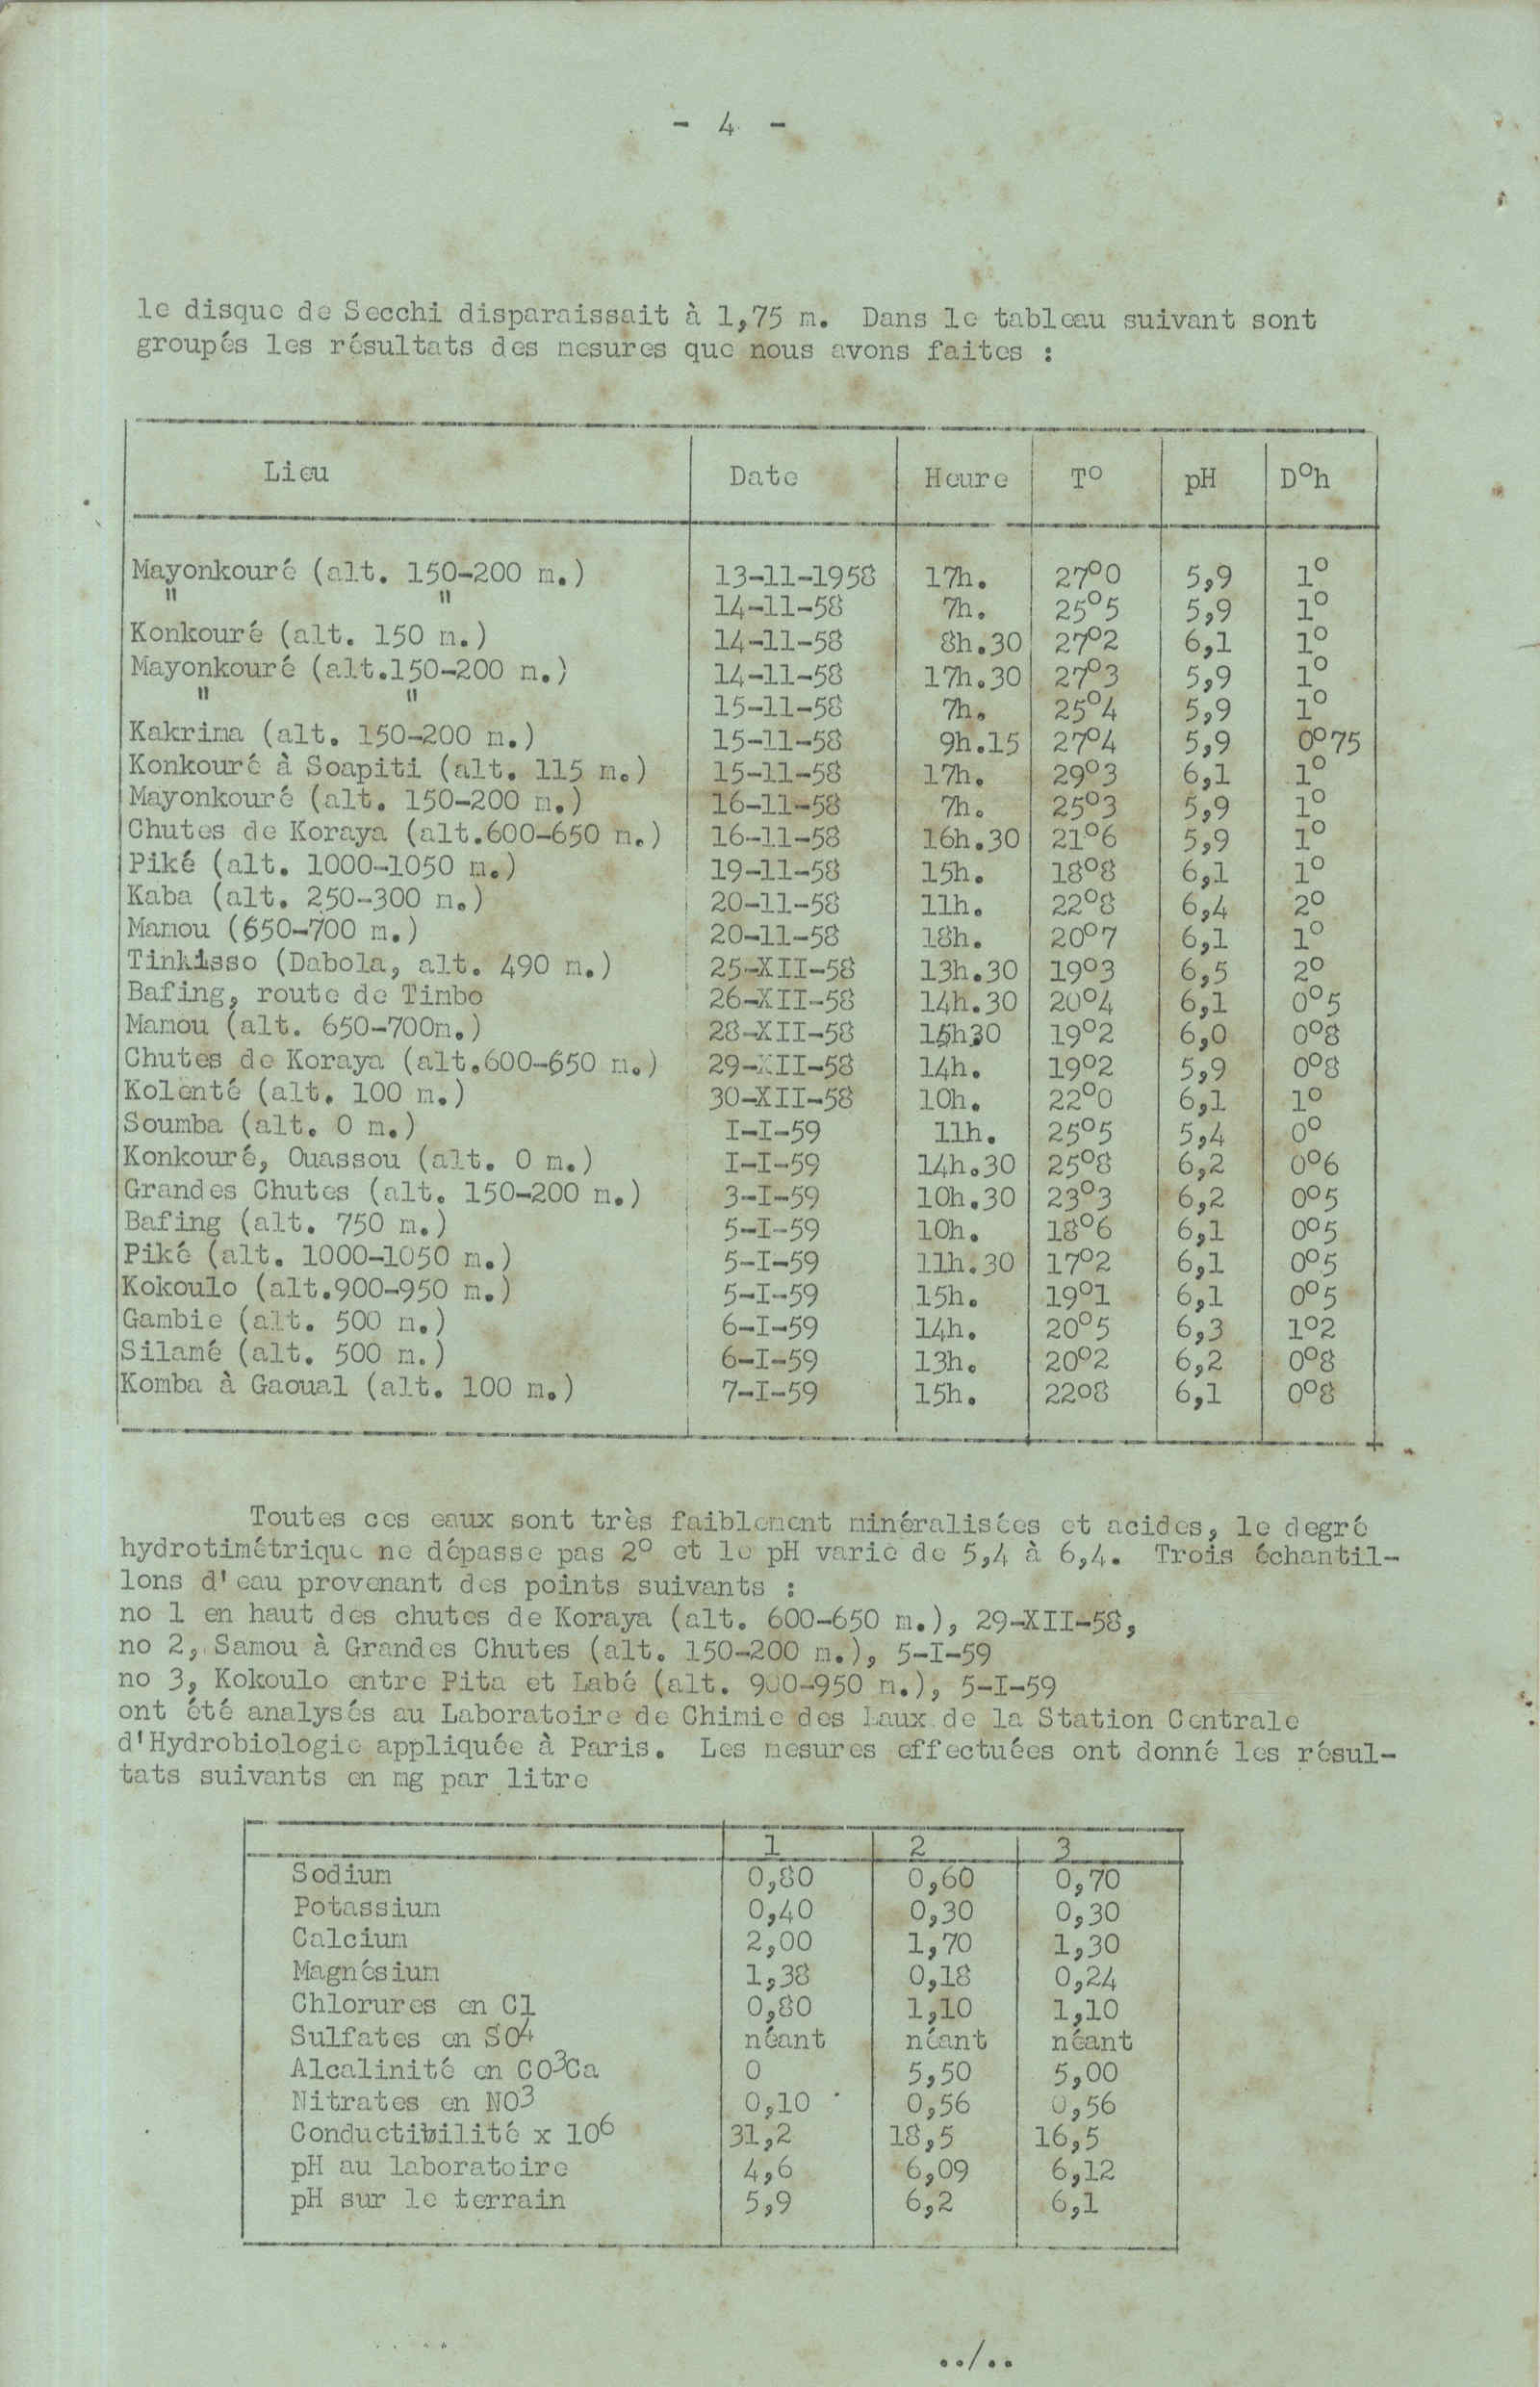 - 4 -
le disque de Secchi disparaissait à 1,75 m. Dans le tableau suivant sont
groupés les résultats des mesures que nous avons faites :
Lieu Date Heure T° pH D°h
Mayonkouré (alt. 150-200 m.) 13-11-1958 17h. 27°0 5,9 1°
" " 14-11-58 7h. 25°5 5,9 1°
Konkouré (alt. 150 m.) 14-11-58 8h.30 27°2 6,1 1°
Mayonkouré (alt.150-200 m.) 14-11-58 17h.30 27°3 5,9 1°
" " 15-11-58 7h. 25°4 5,9 1°
Kakrima (alt. 150-200 m.) 15-11-58 9h.15 27°4 5,9 0°75
Konkouré à Soapiti (alt. 115 m.) 15-11-58 17h. 29°3 6,1 1°
Mayonkouré (alt. 150-200 m.) 16-11-58 7h. 25°3 5,9 1°
Chutes de Koraya (alt.600-650 m.) 16-11-58 16h.30 21°6 5,9 1°
Piké (alt. 1000-1050 m.) 19-11-58 15h. 18°8 6,1 1°
Kaba (alt. 250-300 m.) 20-11-58 11h. 22°8 6,4 2°
Mamou (650-700 m.) 20-11-58 18h. 20°7 6,1 1°
Tinkisso (Dabola, alt. 490 m.) 25-XII-58 13h.30 19°3 6,5 2°
Bafing, route de Timbo 26-XII-58 14h.30 20°4 6,1 0°5
Mamou (alt. 650-700m.) 28-XII-58 16h30 19°2 6,0 0°8
Chutes de Koraya (alt.600-650 m.) 29-XII-58 14h. 19°2 5,9 0°8
Kolenté (alt. 100 m.) 30-XII-58 10h. 22°0 6,1 1°
Soumba (alt. 0 m.) I-I-59 11h. 25°5 5,4 0°
Konkouré, Ouassou (alt. 0 m.) I-I-59 14h.30 25°8 6,2 0°6
Grandes Chutes (alt. 150-200 m.) 3-I-59 10h.30 23°3 6,2 0°5
Bafing (alt. 750 m.) 5-I-59 10h. 18°6 6,1 0°5
Piké (alt. 1000-1050 m.) 5-I-59 11h.30 17°2 6,1 0°5
Kokoulo (alt.900-950 m.) 5-I-59 15h. 19°1 6,1 0°5
Gambie (alt. 500 m.) 6-I-59 14h. 20°5 6,3 1°2
Silamé (alt. 500 m.) 6-I-59 13h. 20°2 6,2 0°8
Komba à Gaoual (alt. 100 m.) 7-I-59 15h. 22o8 6,1 0°8
Toutes ces eaux sont très faiblement minéralisées et acides, le degré
hydrotimétrique ne dépasse pas 2° et le pH varie de 5,4 à 6,4. Trois échantil-
lons d'eau provenant des points suivants :
no 1 en haut des chutes de Koraya (alt. 600-650 m.), 29-XII-58,
no 2, Samou à Grandes Chutes (alt. 150-200 m.), 5-I-59
no 3, Kokoulo entre Pita et Labé (alt. 900-950 m.), 5-I-59
ont été analysés au Laboratoire de Chimie des Eaux de la Station Centrale
d'Hydrobiologie appliquée à Paris. Les mesures effectuées ont donné les résul-
tats suivants en mg par litre
1 2 3
Sodium 0,80 0,60 0,70
Potassium 0,40 0,30 0,30
Calcium 2,00 1,70 1,30
Magnésium 1,38 0,18 0,24
Chlorures en Cl 0,80 1,10 1,10
Sulfates en SO4 néant néant néant
Alcalinité en CO3Ca 0 5,50 5,00
Nitrates en NO3 0,10 0,56 0,56
Conductibilité x 10^6 31,2 18,5 16,5
pH au laboratoire 4,6 6,09 6,12
pH sur le terrain 5,9 6,2 6,1
../..